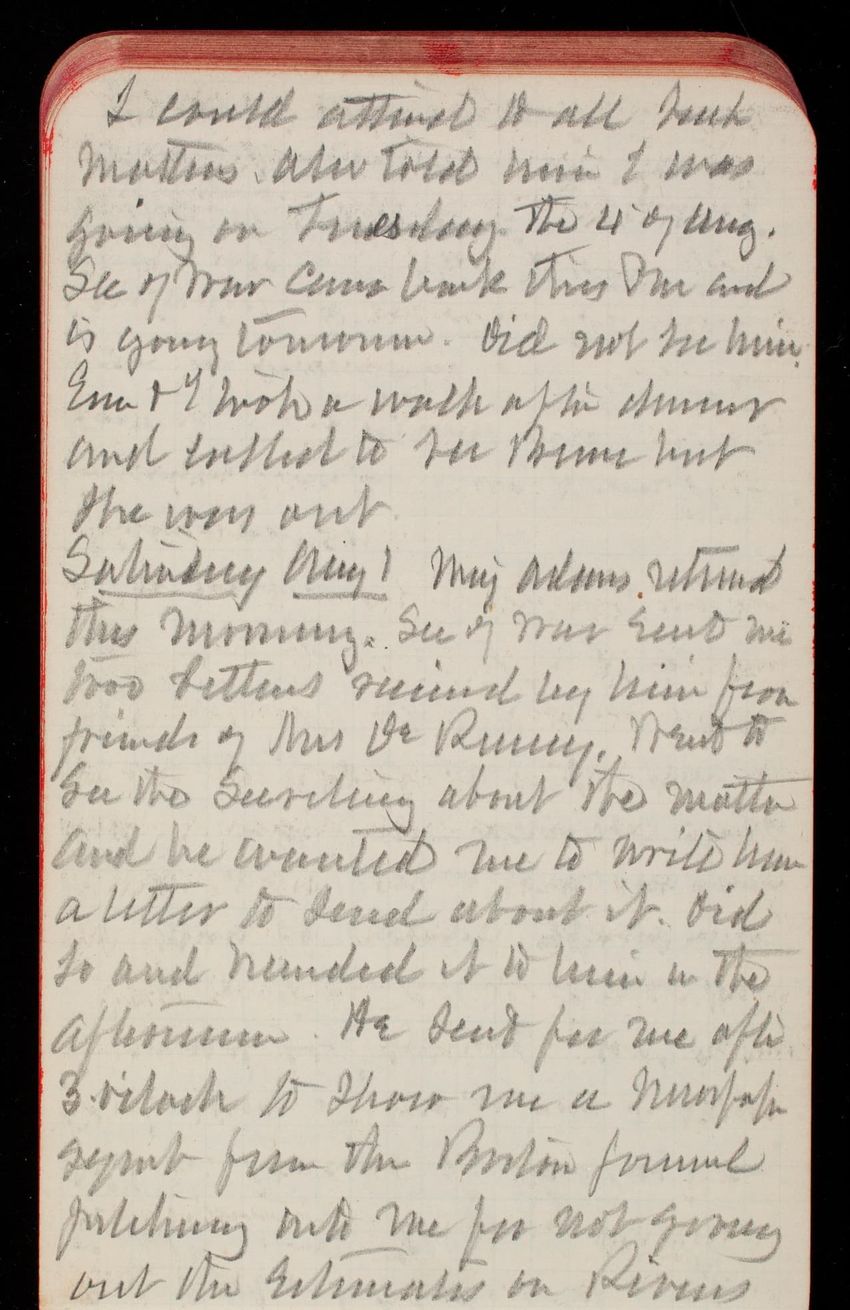 I could attend to all such
matters. Also told him I was
going on Tuesday the 4 of Aug.
Sec of War came back this PM and
is going tomorrow. Did not see him.
Em & I took a walk after dinner
and called to see but
she was out
Saturday Aug 1 Maj Adams returned
this morning. Sec of War sent me
two letters received by him from
friends of Mrs De Russey. Went to
see the Secretary about the matter
and he wanted me to write him
a letter to send about it. Did
so and handed it to him in the
afternoon. He sent for me after
3 o'clock to show me a newspaper
report from the Boston Journal
pitching into me for not giving
out the Estimates on Rivers